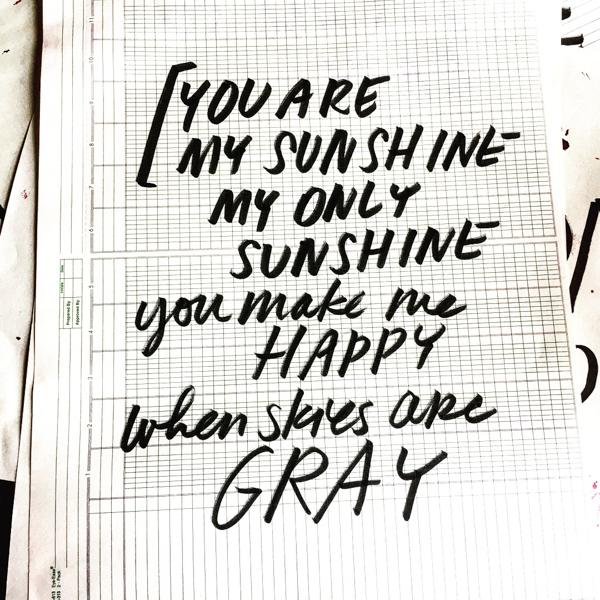 [YOU ARE
MY SUNSHINE
MY ONLY
SUNSHINE
you make me
HAPPY
when skies are
GRAY
Prepared By
Approved By
Initials
Date
Eye-Ease®
2 - Pack